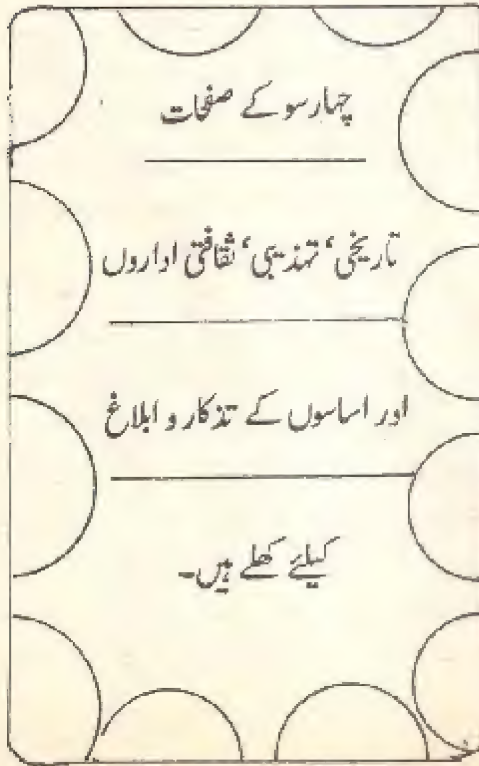 چہارسو کے صفحات
تاریخی، تہذیبی، ثقافتی اداروں
اور اساسوں کے تذکار و ابلاغ
کیلئے کھلے ہیں۔